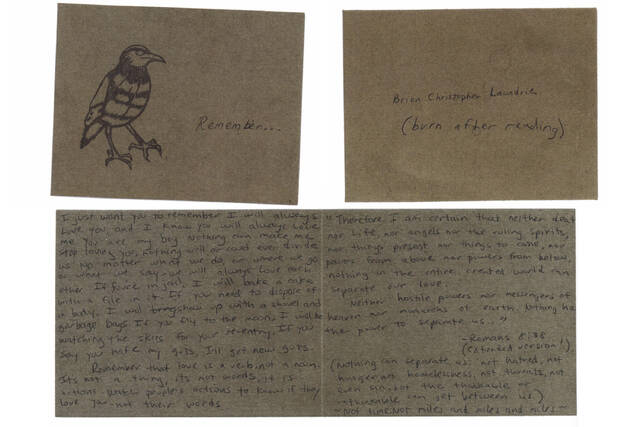 Remember...
Brian Christopher Laundrie
(burn after reading)
I just want you to remember I will always
love you and I know you will always love
me. You are my boy. Nothing can make me
stop loving you, nothing will or could ever divide
us. No matter what we do, or where we go
or what we say - we will always love each
other. If you're in jail, I will bake a cake
with a file in it. If you need to dispose of
a body, I will show up with a shovel and
garbage bags. If you fly to the moon, I will be
watching the skies for your re-entry. If you
say you hate my guts, I'll get new guts.
Remember that love is a verb not a noun.
It's not a thing, it's not words, it is
actions. Watch people's actions to know if they
love you - not their words.
"Therefore I am certain that neither death
nor life, nor angels nor the ruling spirits,
nor things present nor things to come, nor
powers from above nor powers from below,
nothing in the entire created world can
separate our love.
Neither hostile powers nor messengers of
heaven nor monarchs of earth. Nothing has
the power to separate us."
- Romans 8:38
(extended version!)
(Nothing can separate us: not hatred, not
hunger, not homelessness, not threats, not
even sin - not the thinkable or
unthinkable can get between us.)
~ Not time. Not miles and miles and miles ~